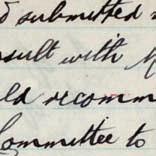 submitted
sult with
recomm
Committee to